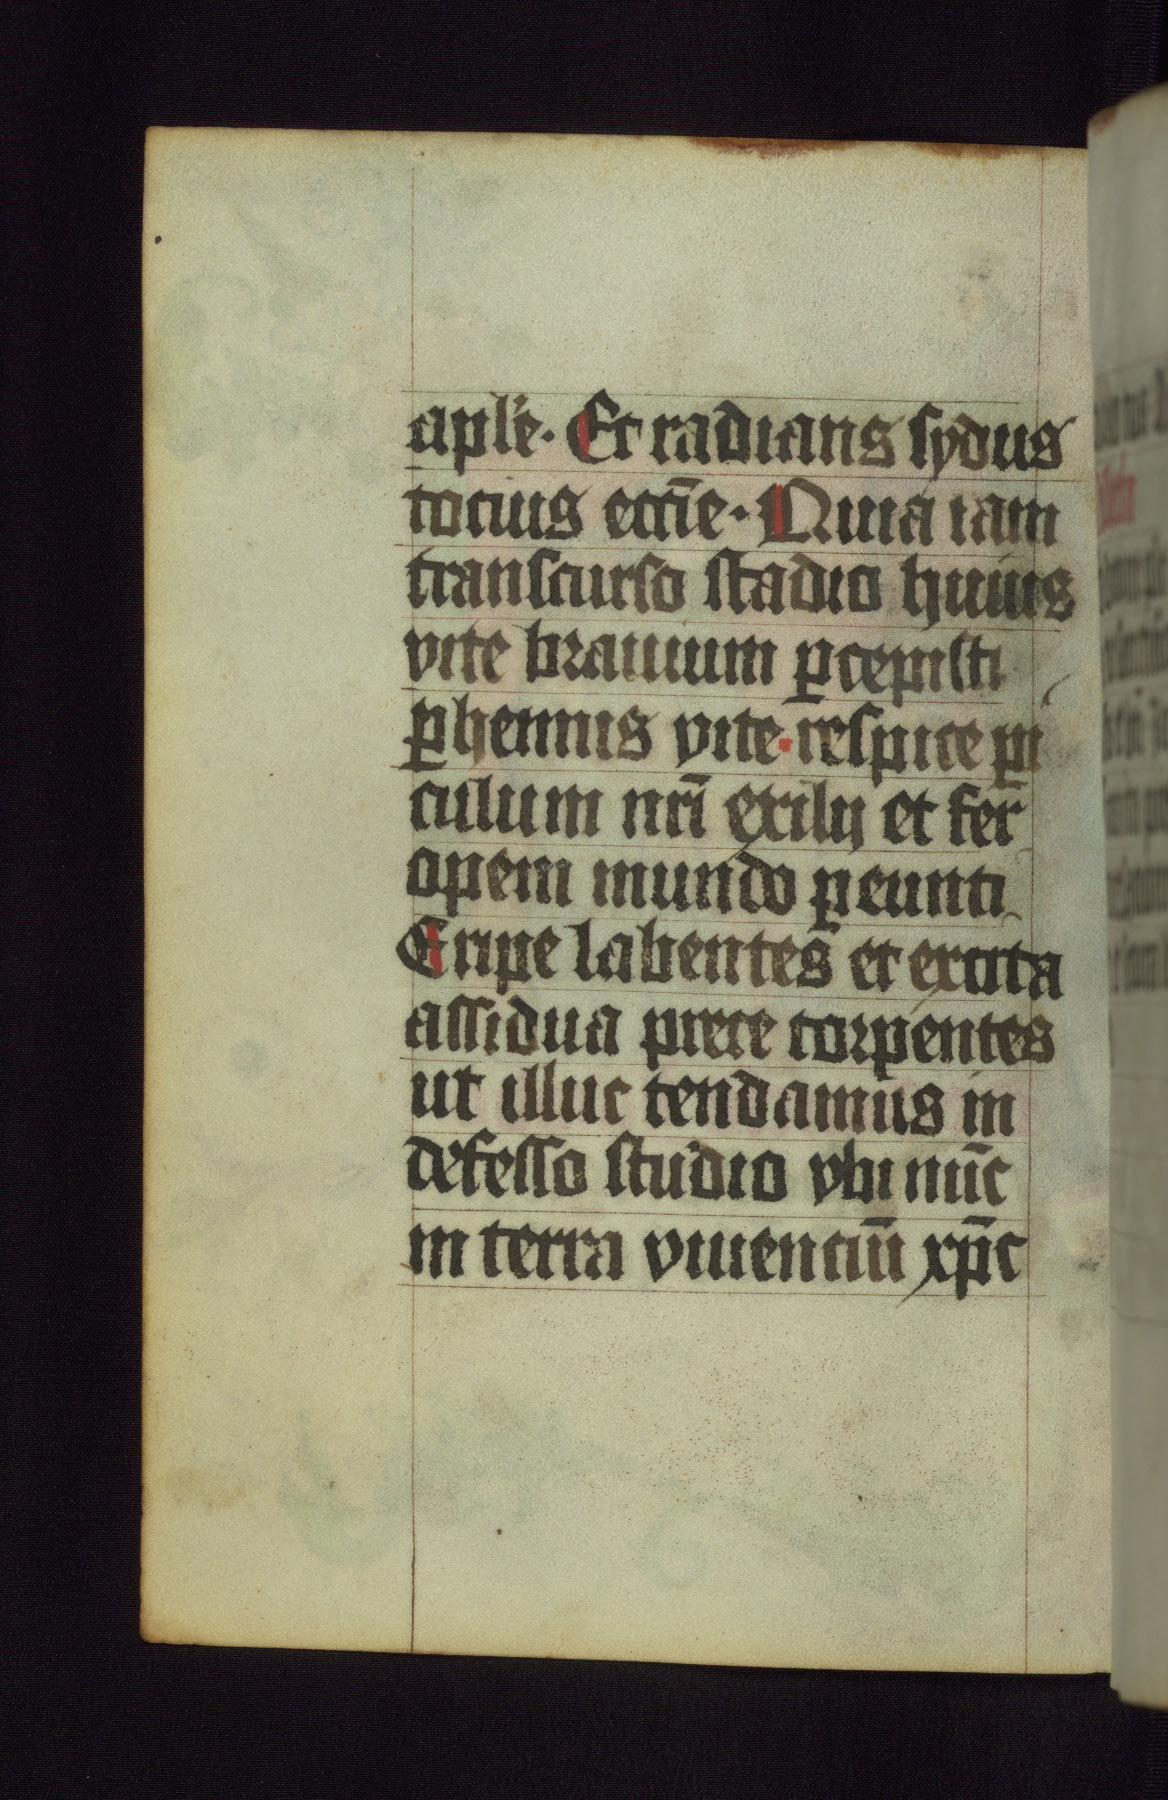 apl'e. Et radians sydus
tocius eccl̄ie. Quia iam
transcurso stadio huius
vite brauium p̱cepisti
p̱hennis vite. respice p̱i
culum nr̄i exilij et fer
opem mundo p̱eunti
Eripe labentes et excita
assidua prece torpentes
ut illuc tendamus in
defesso studio vbi nūc
in terra viuenciū xp̄c